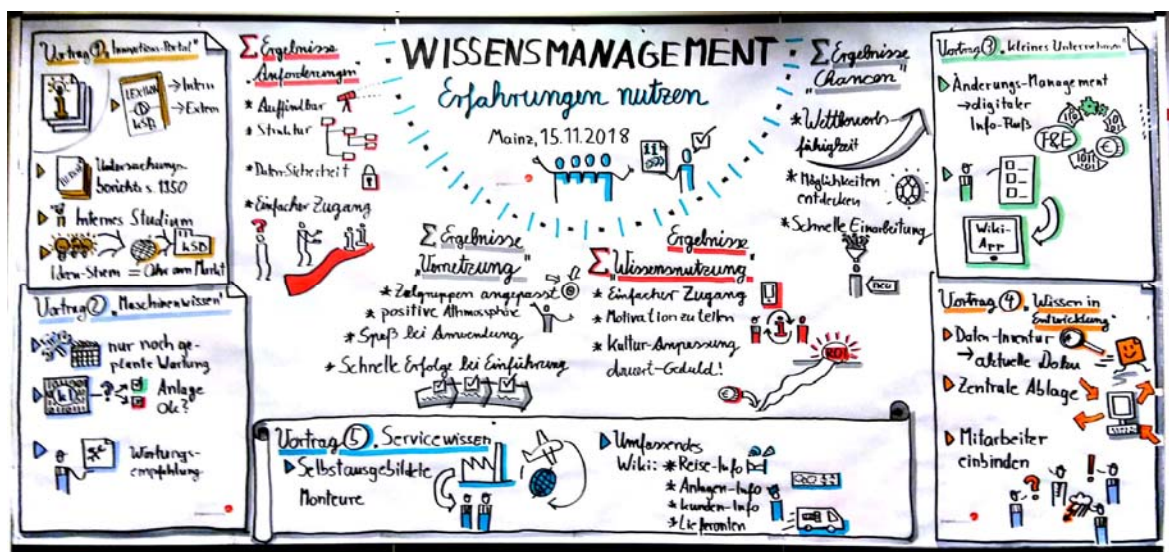 WISSENSMANAGEMENT
Erfahrungen nutzen
Mainz, 15.11.2018
Vortrag ① "Innovations-Portal"
LEXIKON
KSB
→ Intern
→ Extern
Untersuchungs-
berichte s. 1950
Internes Studium
KSB
Ideen-Strom = Ohr am Markt
Σ Ergebnisse
"Anforderungen"
* Auffindbar
* Struktur
* Daten-Sicherheit
* Einfacher Zugang
?
Σ Ergebnisse
"Vernetzung"
* Zielgruppen angepasst
* positive Athmosphäre
* Spaß bei Anwendung
* Schnelle Erfolge bei Einführung
Ergebnisse
Σ "Wissensnutzung"
* Einfacher Zugang
* Motivation zu teilen
* Kultur-Anpassung
dauert-Geduld!
i
ROI
€
Σ Ergebnisse
"Chancen"
* Wettbewerbs-
fähigkeit
* Möglichkeiten
entdecken
* Schnelle Einarbeitung
neu
Vortrag ③ "kleines Unternehmen"
Änderungs-Management
→ digitaler
Info-Fluß
F&E
€
Wiki-
App
Vortrag ② "Maschinenwissen"
nur noch ge-
plante Wartung
?
Anlage
Ok?
Wartungs-
empfehlung
Vortrag ④ "Wissen in
Entwicklung"
Daten-Inventur
→ aktuelle Daten
Zentrale Ablage
Mitarbeiter
einbinden
? ! ?
Vortrag ⑤ "Servicewissen
Selbstausgebildete
Monteure
Umfassendes
Wiki: * Reise-Info
* Anlagen-Info
* Kunden-Info
* Lieferanten